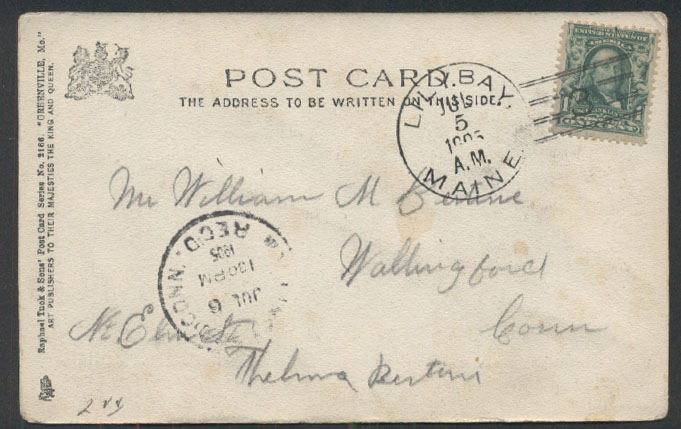 Raphael Tuck & Sons' Post Card Series No. 2166. "GREENVILLE, Me."
ART PUBLISHERS TO THEIR MAJESTIES THE KING AND QUEEN.
POST CARD.
THE ADDRESS TO BE WRITTEN ON THIS SIDE.
LILY BAY
JUL
5
1905
A.M.
MAINE
Mr William M
Wallingford
Conn
RECD.
1905
130 PM
JUL 6
CONN
Thelma